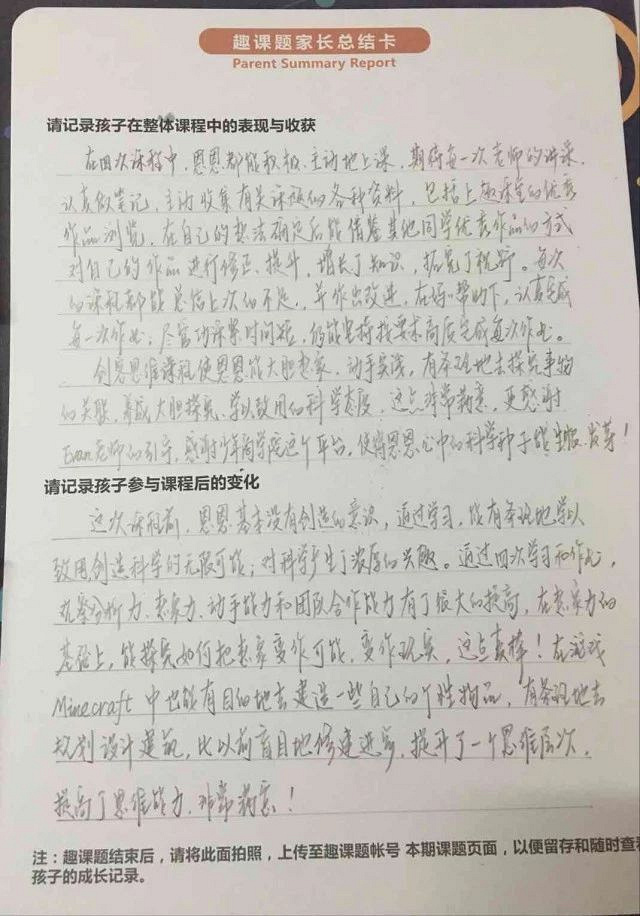 趣课题家长总结卡
Parent Summary Report
请记录孩子在整体课程中的表现与收获
在四次课程中，恩恩都能积极、主动地上课，期待每一次老师的讲课，
认真做笔记，主动收集有关课题的各种资料，包括上趣课堂的优秀
作品浏览，在自己的想法确定后能借鉴其他同学优秀作品的方式
对自己的作品进行修正、提升，增长了知识，拓宽了视野。每次
的课程都能总结上次的不足，并作出改进，在妈帮助下，认真完成
每一次作业，尽管功课紧时间短，仍能坚持按要求高质完成每次作业。
创客思维课程使恩恩能大胆想象，动手实践，有条理地去探究事物
的关联，养成大胆探索、学以致用的科学态度，这点非常满意，更感谢
Evan老师的引导，感谢少年商学院这个平台，使得恩恩心中的科学种子能生根、发芽！
请记录孩子参与课程后的变化
这次课程前，恩恩基本没有创造的意识，通过学习，能有条理地学以
致用创造科学的无限可能；对科学产生了浓厚的兴趣。通过四次学习和作业，
观察分析力、想象力、动手能力和团队合作能力有了很大的提高，在想象力的
基础上，能探究如何把想象变作可能，变作现实，这点真棒！在游戏
Minecraft 中也能有目的地去建造一些自己的个性物品，有条理地去
规划设计建筑，比以前盲目地修建进步，提升了一个思维层次，
提高了思维能力，非常满意！
注：趣课题结束后，请将此面拍照，上传至趣课题帐号 本期课题页面，以便留存和随时查看
孩子的成长记录。